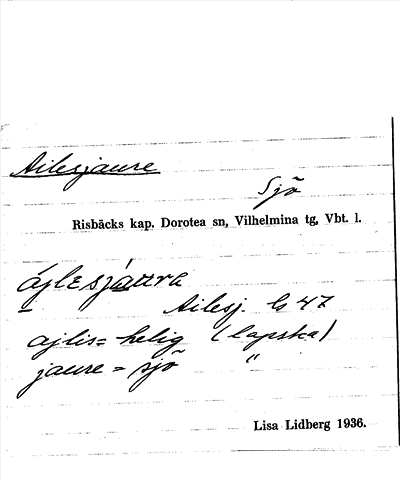 Ailesjaure
Sjö
Risbäcks kap. Dorotea sn, Vilhelmina tg, Vbt. l.
ájlesjáura
Ailesj. Gs 47
ajlis = helig (lapska)
jaure = sjö "
Lisa Lidberg 1936.